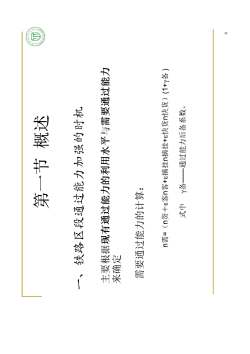 第一节 概述
一、铁路区段通过能力加强的时机
主要根据现有通过能力的利用水平与需要通过能力
来确定
需要通过能力的计算：
n需=（n货+ε客n客+ε摘挂n摘挂+ε快货n快货）(1+γ备)
式中 γ备——通过能力后备系数。